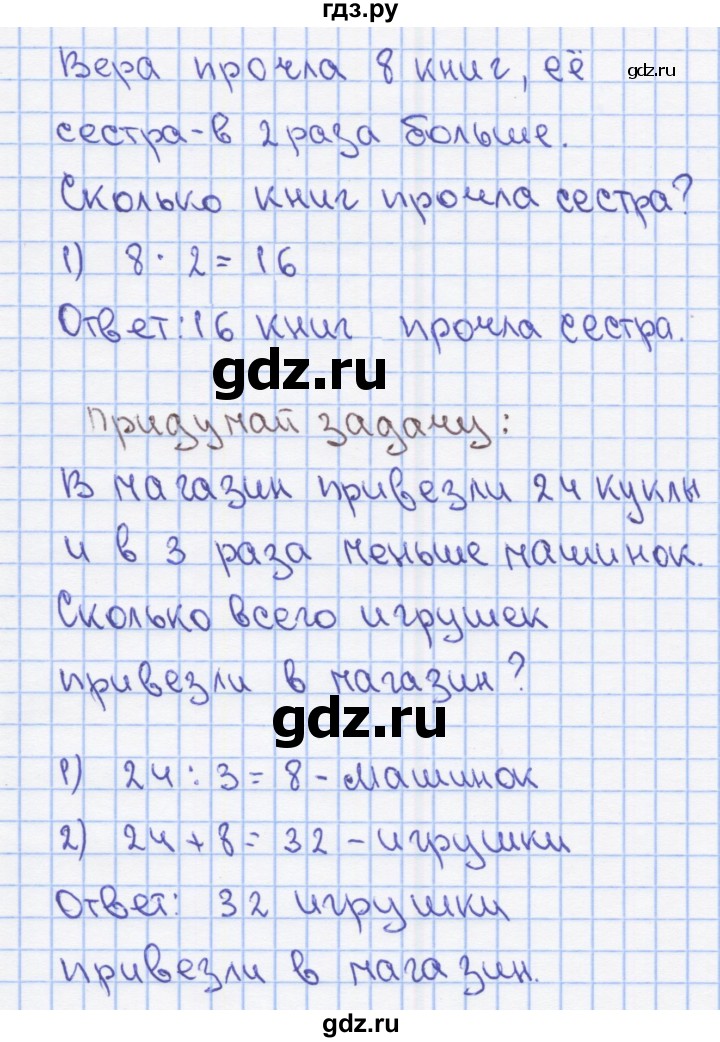 гдз.ру
Вера прочла 8 книг, её
gdz.ru
сестра-в 2 раза больше.
Сколько книг прочла сестра?
1) 8 · 2 = 16
Ответ: 16 книг прочла сестра.
gdz.ru
Придумай задачу:
В магазин привезли 24 куклы
и в 3 раза меньше машинок.
Сколько всего игрушек
привезли в магазин?
gdz.ru
1) 24 : 3 = 8 - машинок
2) 24 + 8 = 32 - игрушки
Ответ: 32 игрушки
привезли в магазин.
gdz.ru